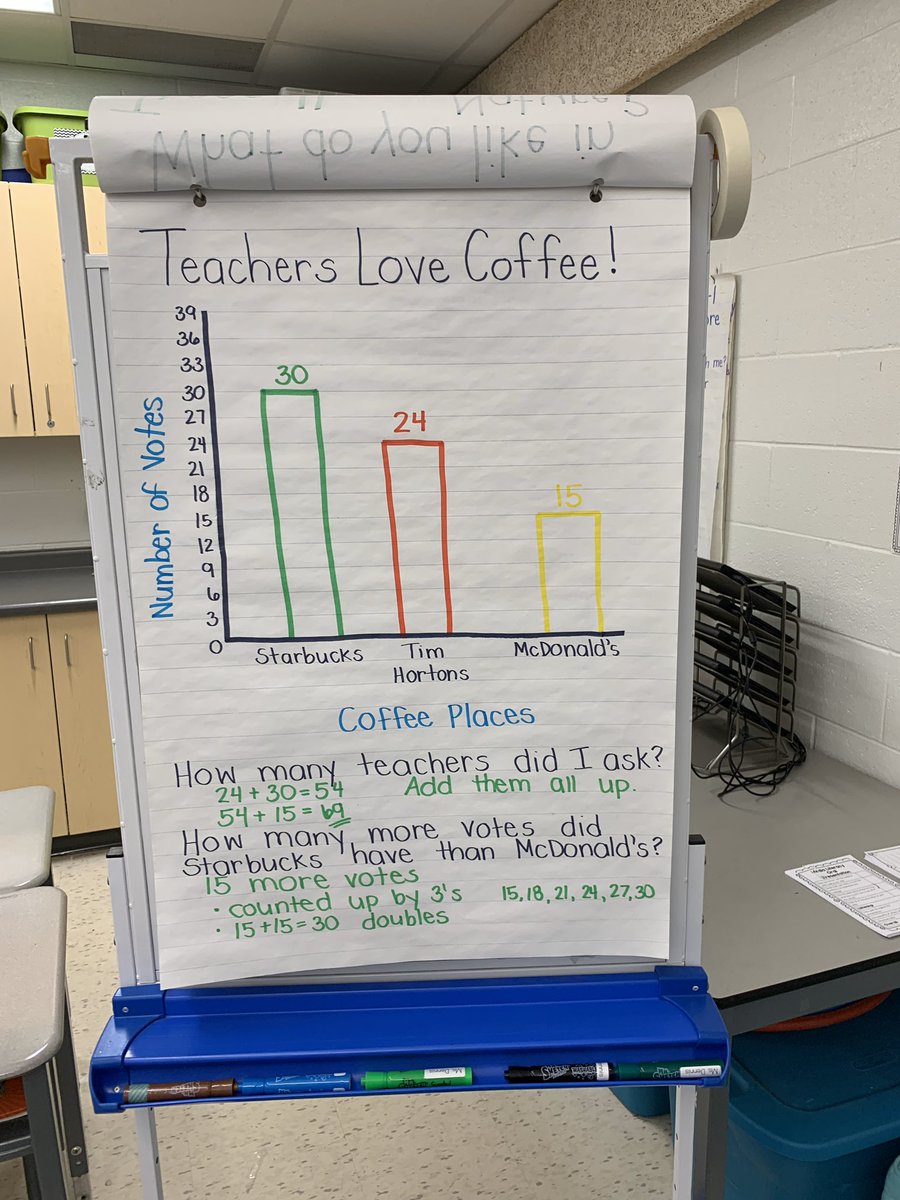 What do you like in
Nature?
Teachers Love Coffee!
39
36
33
30
27
24
21
18
15
12
9
6
3
0
Number of Votes
30
24
15
Starbucks
Tim
Hortons
McDonald's
Coffee Places
How many teachers did I ask?
24 + 30 = 54 Add them all up.
54 + 15 = 69
How many more votes did
Starbucks have than McDonald's?
15 more votes
• counted up by 3's 15, 18, 21, 24, 27, 30
• 15 + 15 = 30 doubles
Ms. Dennis
Ms. Dennis